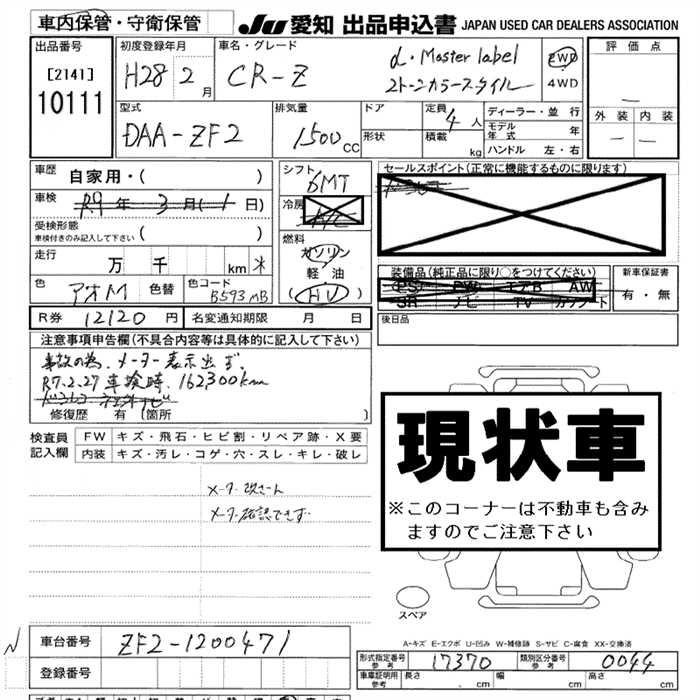 車内保管・守衛保管
JU 愛知 出品申込書 JAPAN USED CAR DEALERS ASSOCIATION
出品番号
[2141]
10111
初度登録年月
H28 2月
車名・グレード
CR-Z
α・Master label
2トーンカラースタイル
2WD
4WD
評価点
—
外装 内装
— —
型式
DAA-ZF2
排気量
1500cc
ドア
形状
定員 4人
積載 kg
ディーラー・並行
モデル年式 年
ハンドル 左・右
車歴 自家用・( )
車検 R9年3月( 1日)
受検形態
車検付きのみ記入して下さい ( )
走行 万 千 km *
色 アオM 色替
色コード B593MB
シフト
6MT
冷房
A/C
燃料
ガソリン
軽油
(HV)
セールスポイント(正常に機能するものに限ります)
装備品(純正品に限り○をつけてください)
PS PW エアB AW
SR ナビ TV カワシート
新車保証書
有・無
R券 12120円 名変通知期限 月 日
後日品
注意事項申告欄(不具合内容等は具体的に記入して下さい)
事故の為、メーター表示出ず、
R7.2.27車検時、162300km
修復歴 有 [箇所 ]
検査員記入欄
FW キズ・飛石・ヒビ割・リペア跡・X要
内装 キズ・汚レ・コゲ・穴・スレ・キレ・破レ
メーター改ざん
メーター確認できず
現状車
※このコーナーは不動車も含みますのでご注意下さい
スペア
A-キズ E-エクボ U-凹み W-補修跡 S-サビ C-腐食 XX-交換済
N
車台番号 ZF2-1200471
登録番号
形式指定番号 参考 17370
類別区分番号 参考 0044
車庫証明用 参考 長さ 幅 高さ